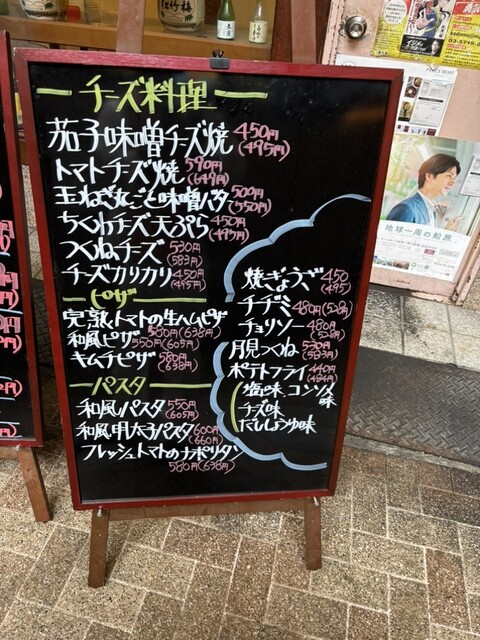 チーズ料理
茄子味噌チーズ焼 450円(495円)
トマトチーズ焼 590円(649円)
玉ねぎ丸ごと味噌バタ 500円(550円)
ちくわチーズ天ぷら 450円(495円)
つくねチーズ 530円(583円)
チーズカリカリ 450円(495円)
ピザ
完熟トマトの生ハムピザ 580円(638円)
和風ピザ 550円(605円)
キムチピザ 580円(638円)
パスタ
和風パスタ 550円(605円)
和風明太子パスタ 600円(660円)
フレッシュトマトのナポリタン 580円(638円)
焼ぎょうざ 450(495)
チヂミ 480円(528円)
チョリソー 480円(528円)
月見つくね 530円(583円)
ポテトフライ 440円(484円)
塩味 コンソメ味
チーズ味
だししょうゆ味
松竹梅
地球一周の船旅